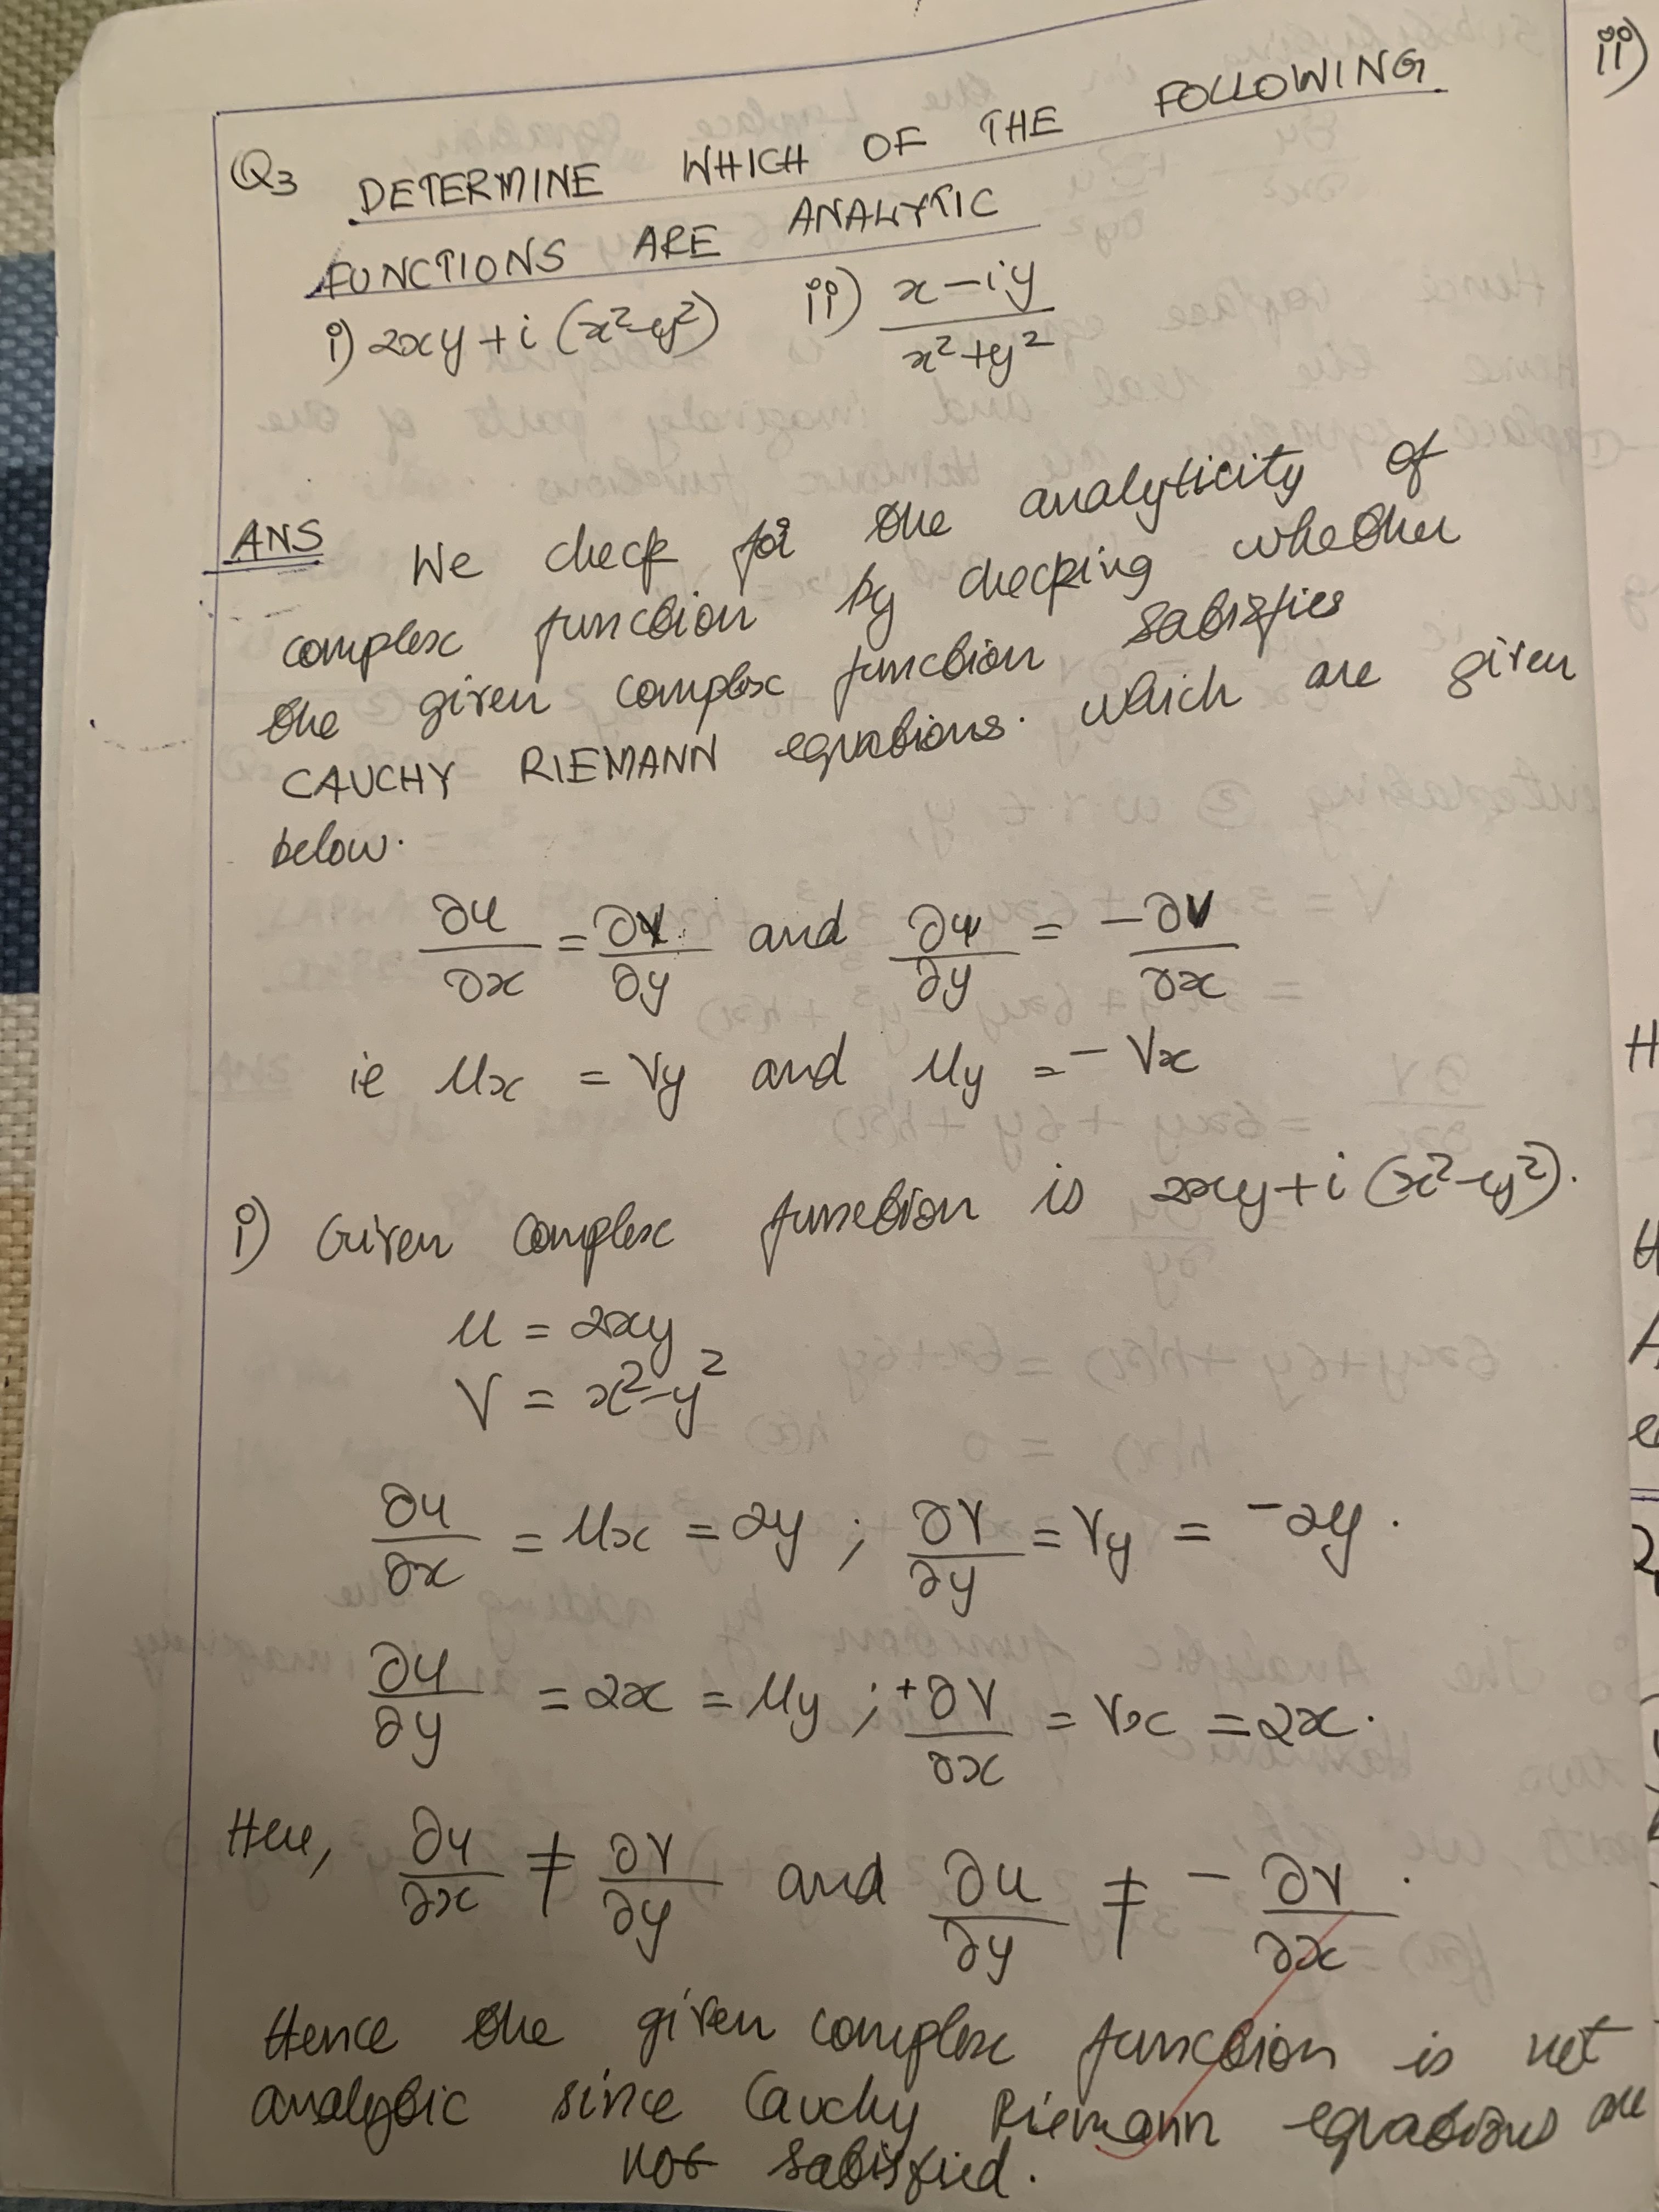 Q3 DETERMINE WHICH OF THE FOLLOWING
FUNCTIONS ARE ANALYTIC
i) 2xy + i (x²-y²) ii) x - iy / x² + y²
ANS We check for the analyticity of
complex function by checking whether
the given complex function satisfies
CAUCHY RIEMANN equations. which are given
below.
∂u/∂x = ∂v/∂y and ∂u/∂y = -∂v/∂x
ie ux = vy and uy = - vx
i) Given complex function is 2xy + i (x²-y²).
u = 2xy
v = x²-y²
∂u/∂x = ux = 2y ; ∂v/∂y = vy = -2y.
∂u/∂y = 2x = uy ; +∂v/∂x = vx = 2x.
Here, ∂u/∂x ≠ ∂v/∂y and ∂u/∂y ≠ - ∂v/∂x.
Hence the given complex function is not
analytic since Cauchy Riemann equations are
not satisfied.
ii)
H
2